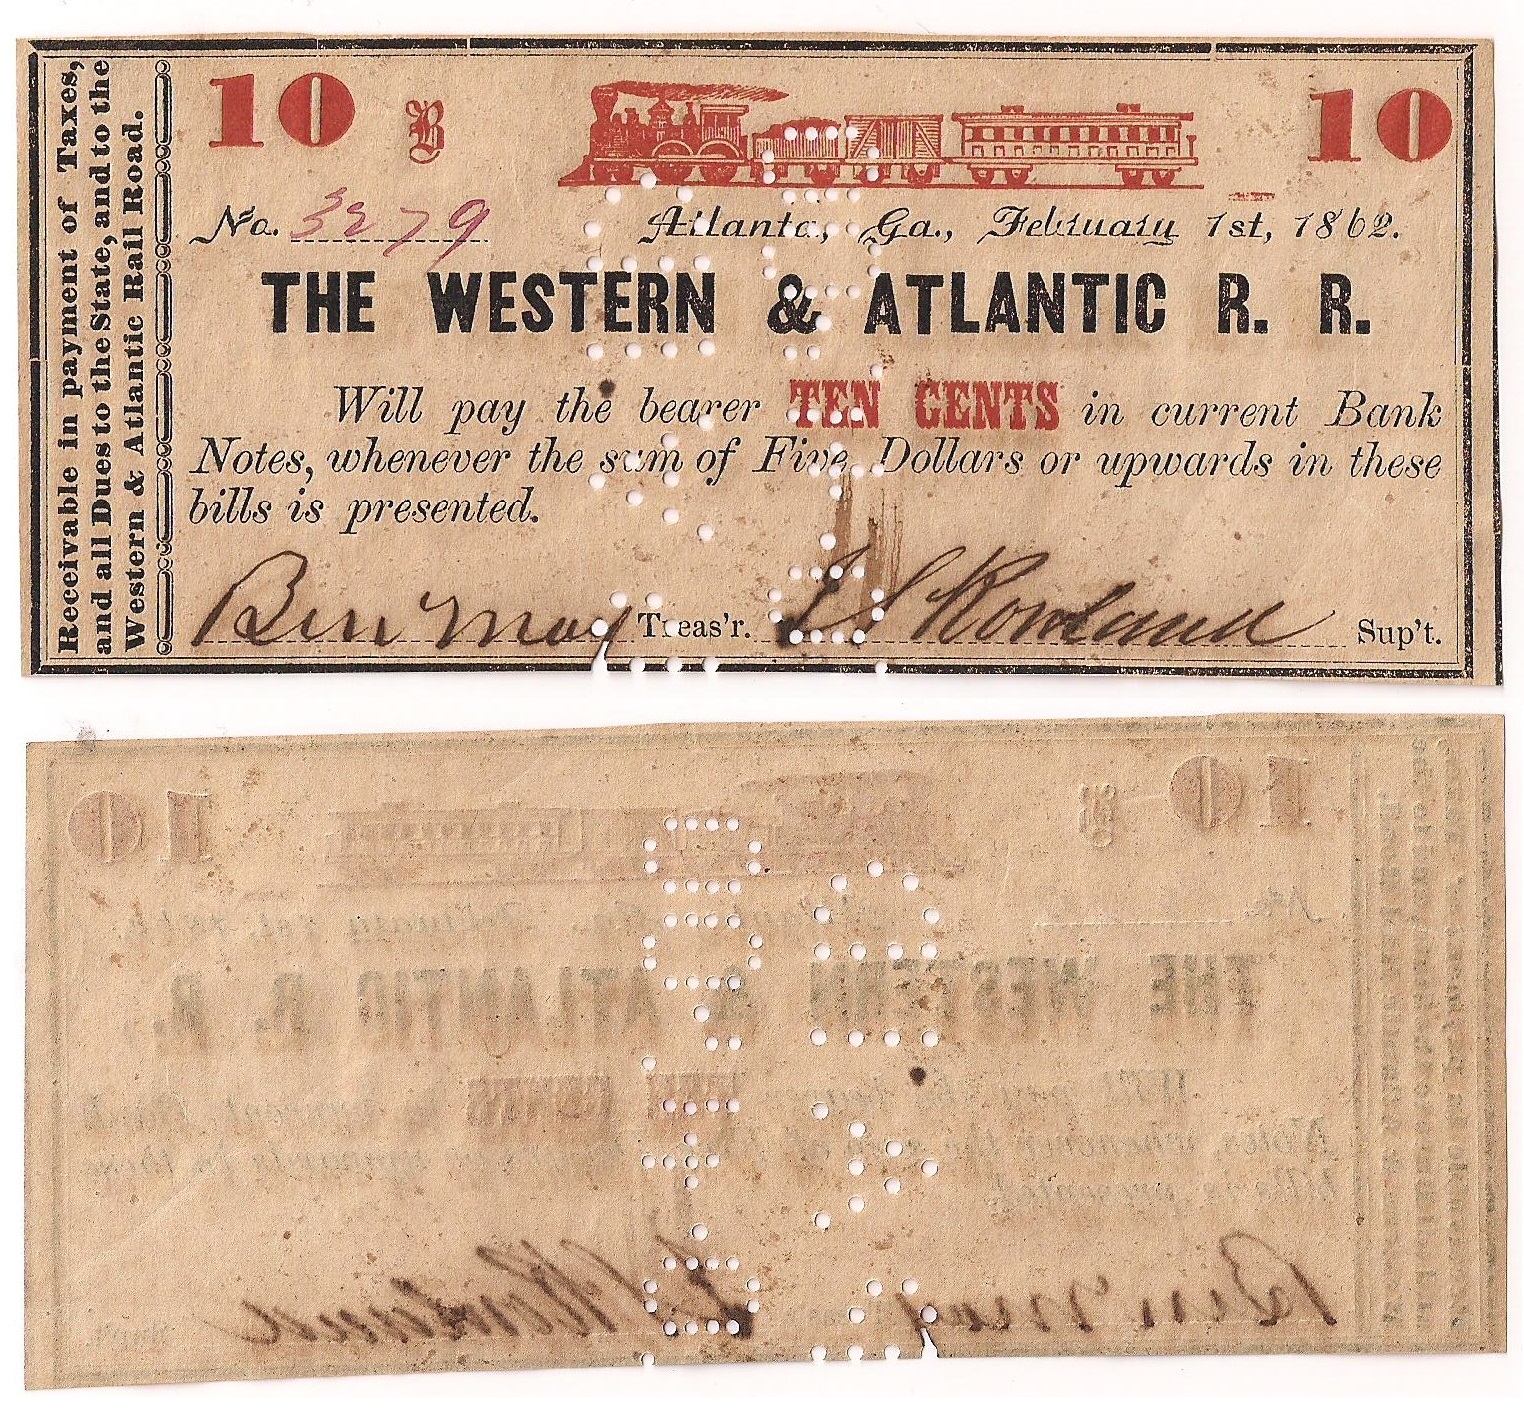 Receivable in payment of Taxes,
and all Dues to the State, and to the
Western & Atlantic Rail Road.
10 B 10
No. 3279 Atlanta, Ga., February 1st, 1862.
THE WESTERN & ATLANTIC R. R.
Will pay the bearer TEN CENTS in current Bank
Notes, whenever the sum of Five Dollars or upwards in these
bills is presented.
Ben May Treas'r. Rowland Sup't.